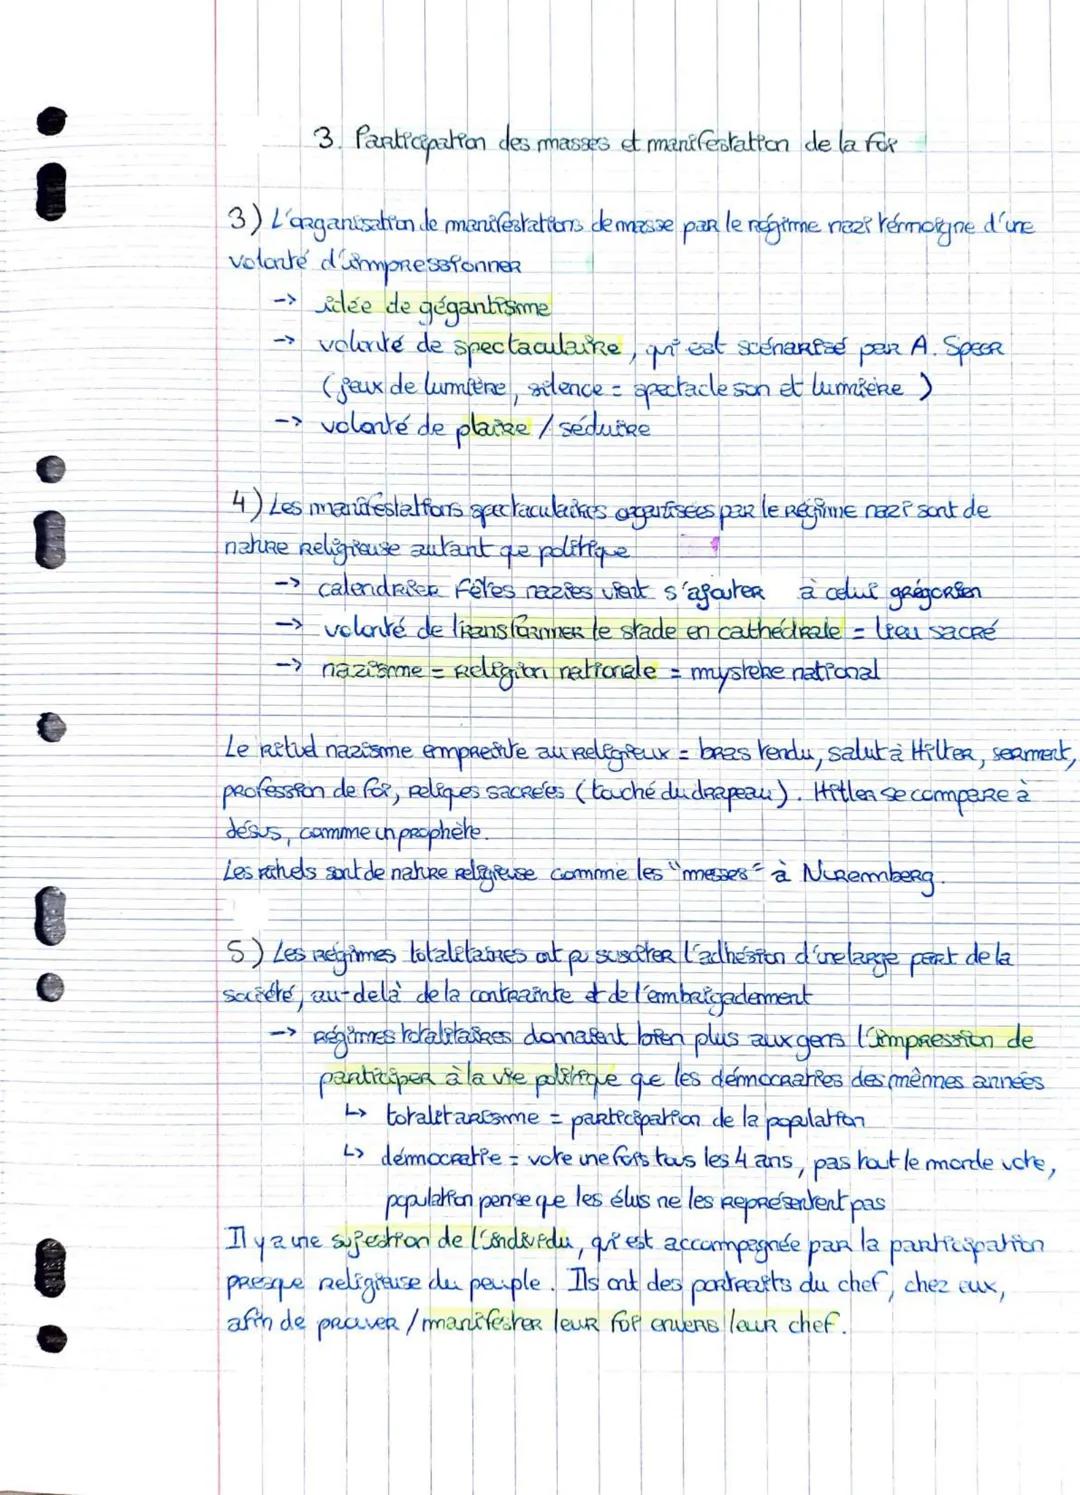 3. Participation des masses et manifestation de la foi
3) L'organisation de manifestations de masse par le régime nazi témoigne d'une
volonté d'impressionner
-> idée de gégantisme
-> volonté de spectaculaire, qui est scénarisé par A. Speer
(jeux de lumière, silence = spectacle son et lumière)
-> volonté de plaire / séduire
4) Les manifestations spectaculaires organisées par le régime nazi sont de
nature religieuse autant que politique
-> calendrier fêtes nazies vient s'ajouter à celui grégorien
-> volonté de transformer le stade en cathédrale = lieu sacré
-> nazisme = religion nationale = mystère national
Le rituel nazisme empreinte au religieux = bras tendu, salut à Hitler, serment,
profession de foi, reliques sacrées (touché du drapeau). Hitler se compare à
Jésus, comme un prophète.
Les rituels sont de nature religieuse comme les "messes" à Nuremberg.
5) Les régimes totalitaires ont pu susciter l'adhésion d'une large part de la
société, au-delà de la contrainte et de l'embrigadement
-> régimes totalitaires donnaient bien plus aux gens l'impression de
participer à la vie politique que les démocraties des mêmes années
↳ totalitarisme = participation de la population
↳ démocratie = vote une fois tous les 4 ans, pas tout le monde vote,
population pense que les élus ne les représentent pas
Il y a une sujection de l'individu, qui est accompagnée par la participation
presque religieuse du peuple. Ils ont des portraits du chef, chez eux,
afin de prouver / manifester leur foi envers leur chef.